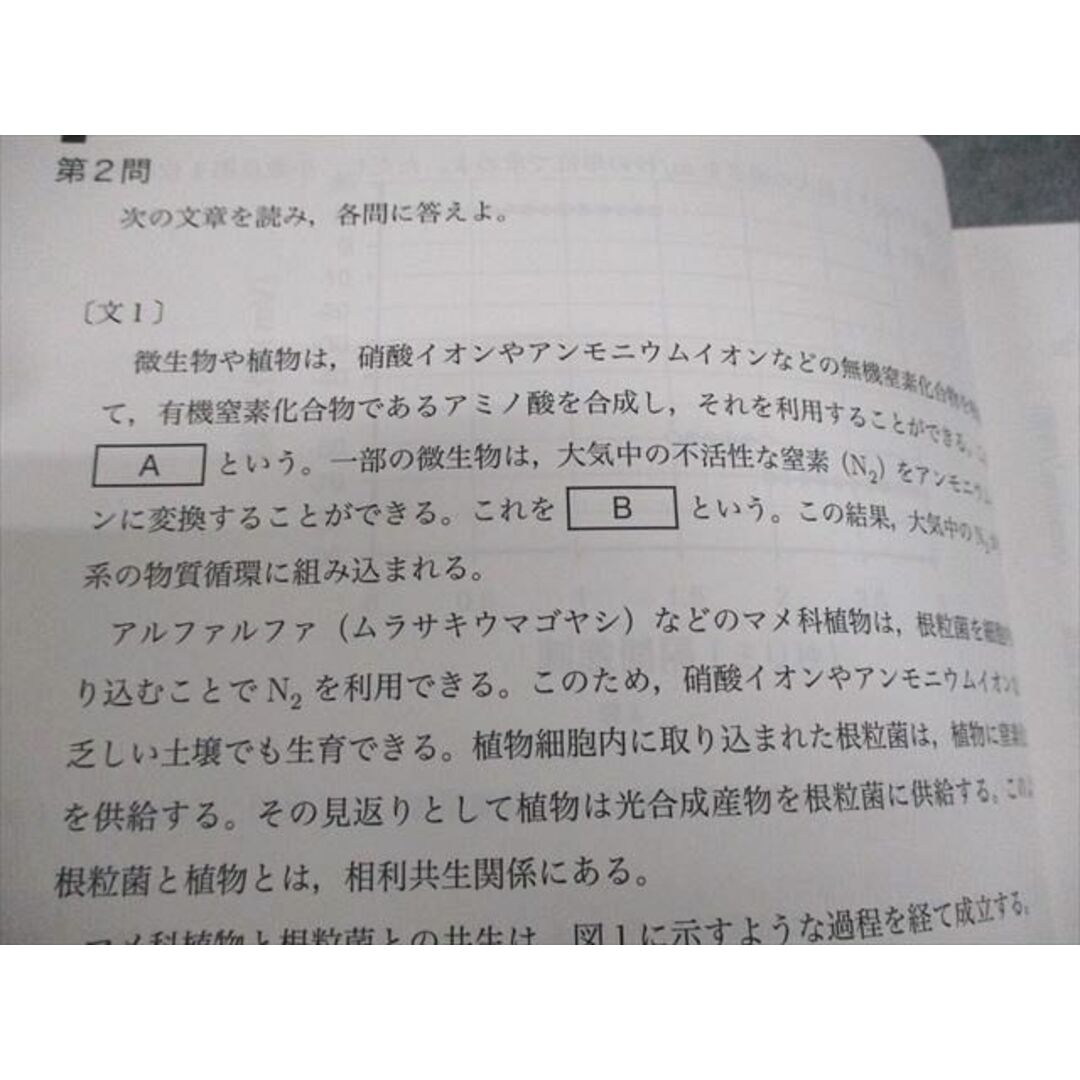 第2問
次の文章を読み，各問に答えよ。
〔文1〕
微生物や植物は，硝酸イオンやアンモニウムイオンなどの無機窒素化合物を
て，有機窒素化合物であるアミノ酸を合成し，それを利用することができる。
A という。一部の微生物は，大気中の不活性な窒素（N₂）をアンモニウム
ンに変換することができる。これを B という。この結果，大気中のN₂
系の物質循環に組み込まれる。
アルファルファ（ムラサキウマゴヤシ）などのマメ科植物は，根粒菌を細胞
り込むことでN₂を利用できる。このため，硝酸イオンやアンモニウムイオン
乏しい土壌でも生育できる。植物細胞内に取り込まれた根粒菌は，植物に窒素
を供給する。その見返りとして植物は光合成産物を根粒菌に供給する。この
根粒菌と植物とは，相利共生関係にある。
マメ科植物と根粒菌との共生は，図1に示すような過程を経て成立する。